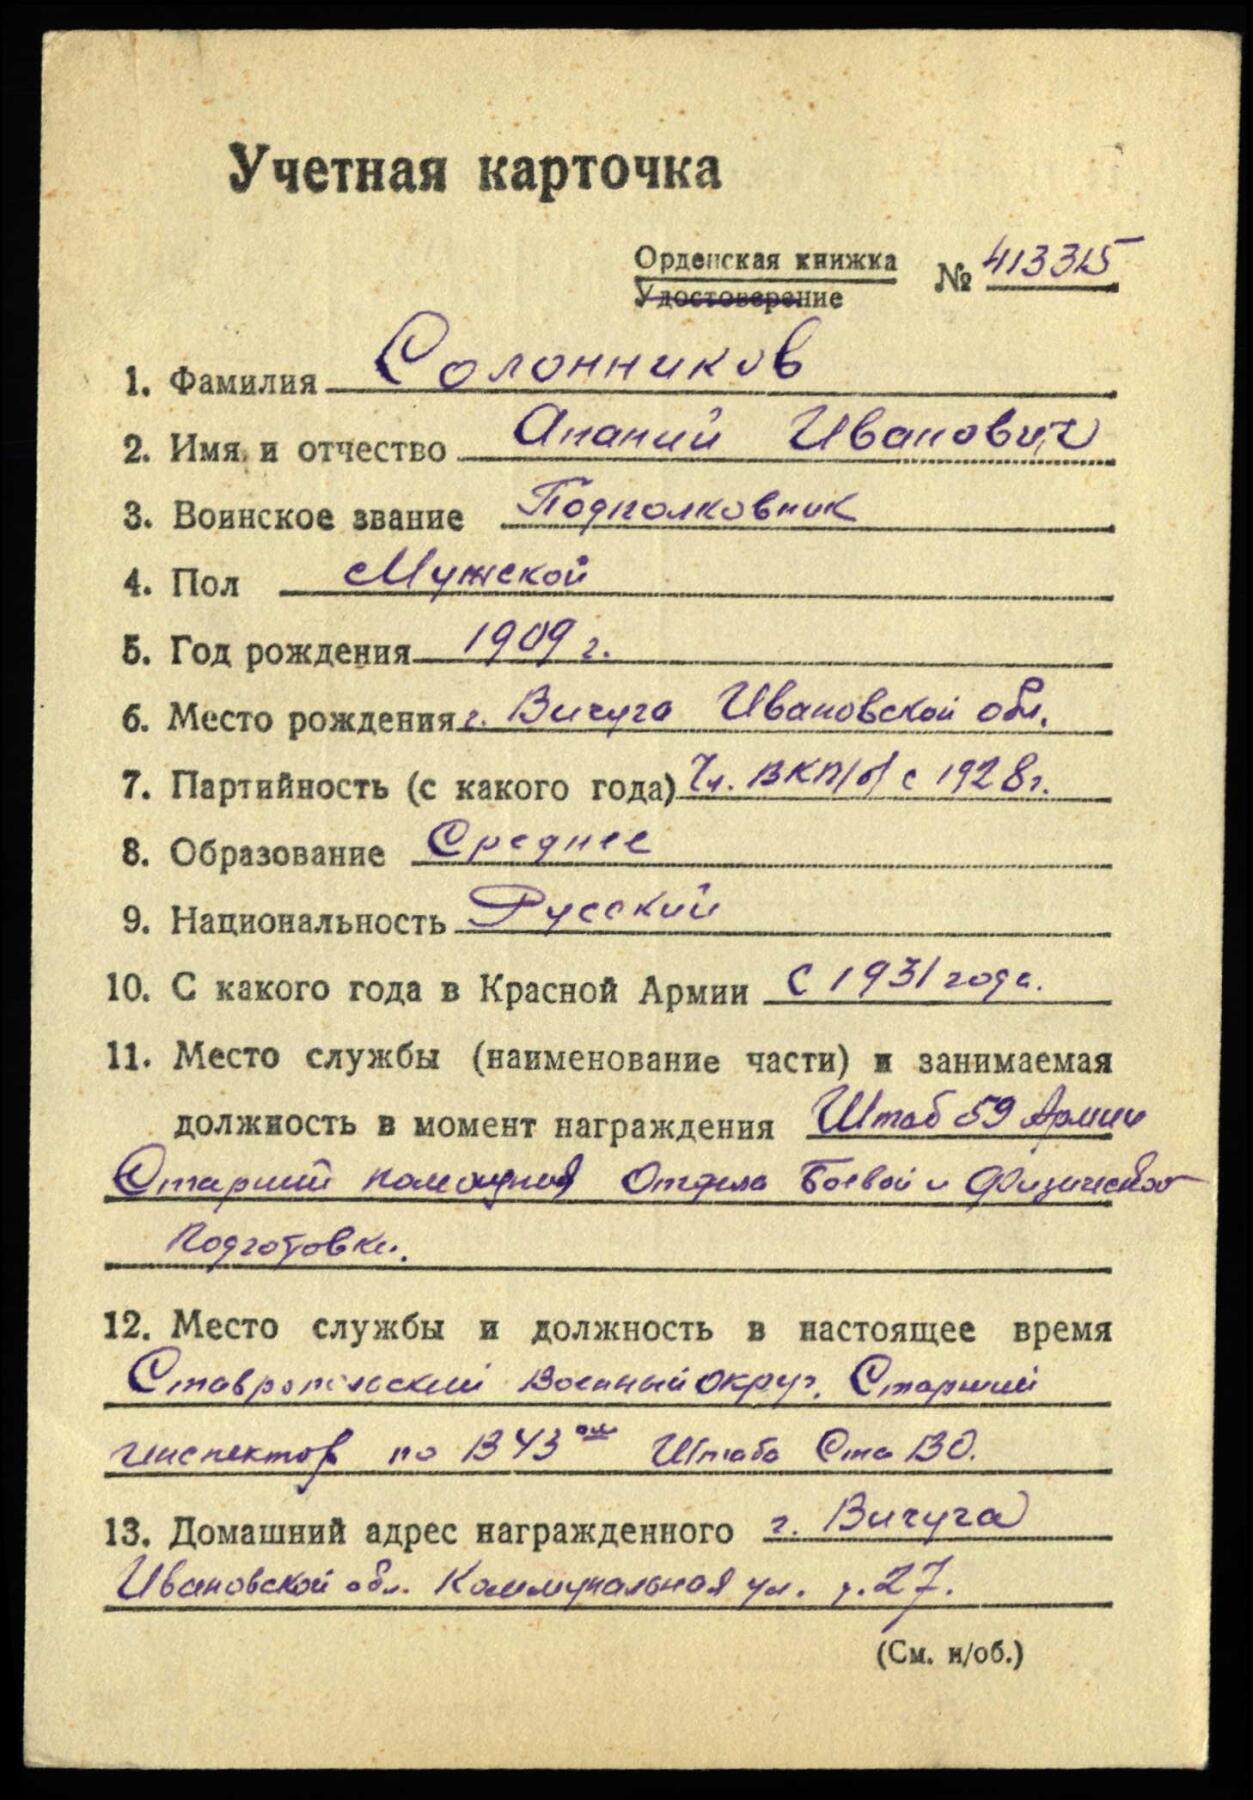 Учетная карточка
Орденская книжка № 413315
Удостоверение
1. Фамилия Солонников
2. Имя и отчество Ананий Иванович
3. Воинское звание Подполковник
4. Пол Мужской
5. Год рождения 1909 г.
6. Место рождения г. Вичуга Ивановской обл.
7. Партийность (с какого года) Чл. ВКП/б/ с 1928 г.
8. Образование Среднее
9. Национальность Русский
10. С какого года в Красной Армии С 1931 года.
11. Место службы (наименование части) и занимаемая
должность в момент награждения Штаб 59 Армии
Старший помощник Отдела Боевой и Физической
Подготовки.
12. Место службы и должность в настоящее время
Ставропольский Военный округ. Старший
инспектор по Штаба Ста ВО.
13. Домашний адрес награжденного г. Вичуга
Ивановской обл. Коммунальная ул. д. 27.
(См. н/об.)